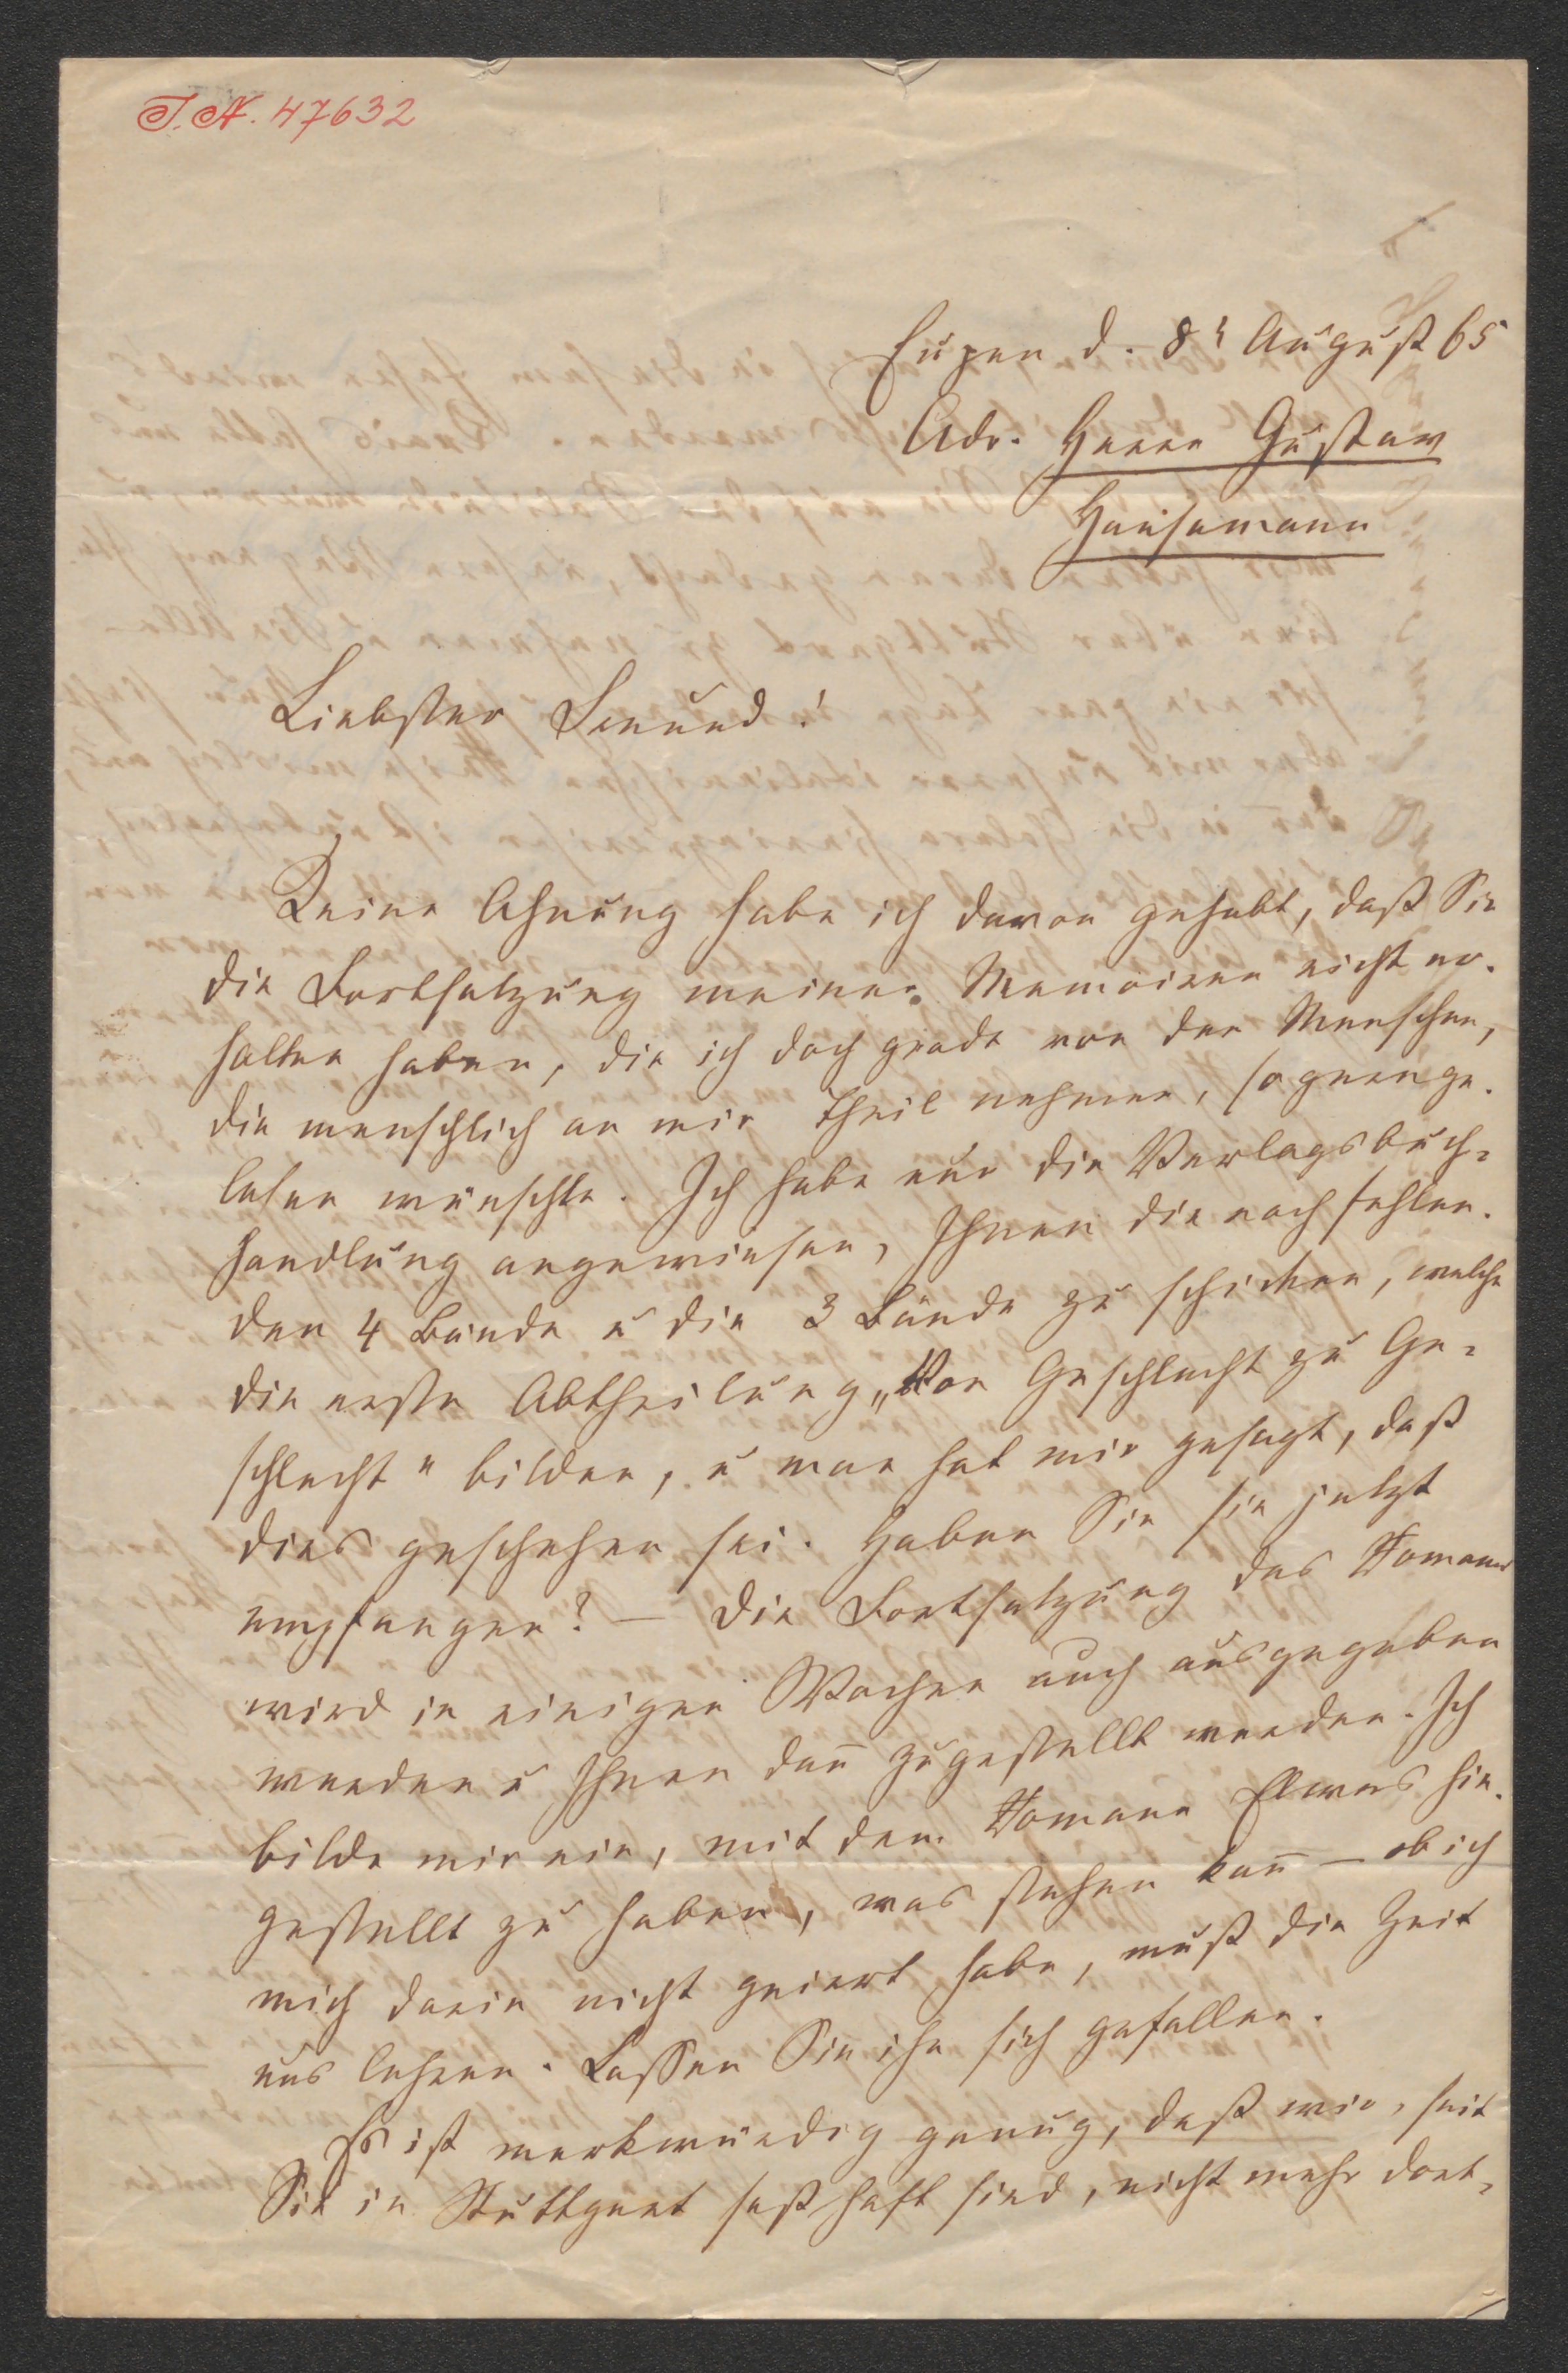 I.N. 47632
Eupen d. 8t August 65
Adr. Herrn Gustav
Hansemann
Liebster Freund!
Keine Ahnung habe ich davon gehabt, daß Sie
die Fortsetzung meiner Memoiren nicht er-
halten haben, die ich doch grade von den Menschen,
die menschlich an mir Theil nehmen, so gern ge-
lesen wünschte. Ich habe nur die Verlagsbuch-
handlung angewiesen, Ihnen die noch fehlen-
den 4 Bände u die 3 Bände zu schicken, welche
die erste Abtheilung „Von Geschlecht zu Ge-
schlecht" bilden, u man hat mir gesagt, daß
dies geschehen sei. Haben Sie sie jetzt
empfangen? — Die Fortsetzung des Romans
wird in einigen Wochen auch ausgegeben
werden u Ihnen dan̄ zugestellt werden. Ich
bilde mir ein, mit dem Romane Etwas hin-
gestellt zu haben, was stehen kan̄ — ob ich
mich darin nicht geirrt habe, muß die Zeit
uns lehren. Lassen Sie ihn sich gefallen.
Es ist merkwürdig genug, daß wir, seit
Sie in Stuttgart seßhaft sind, nicht mehr dort-